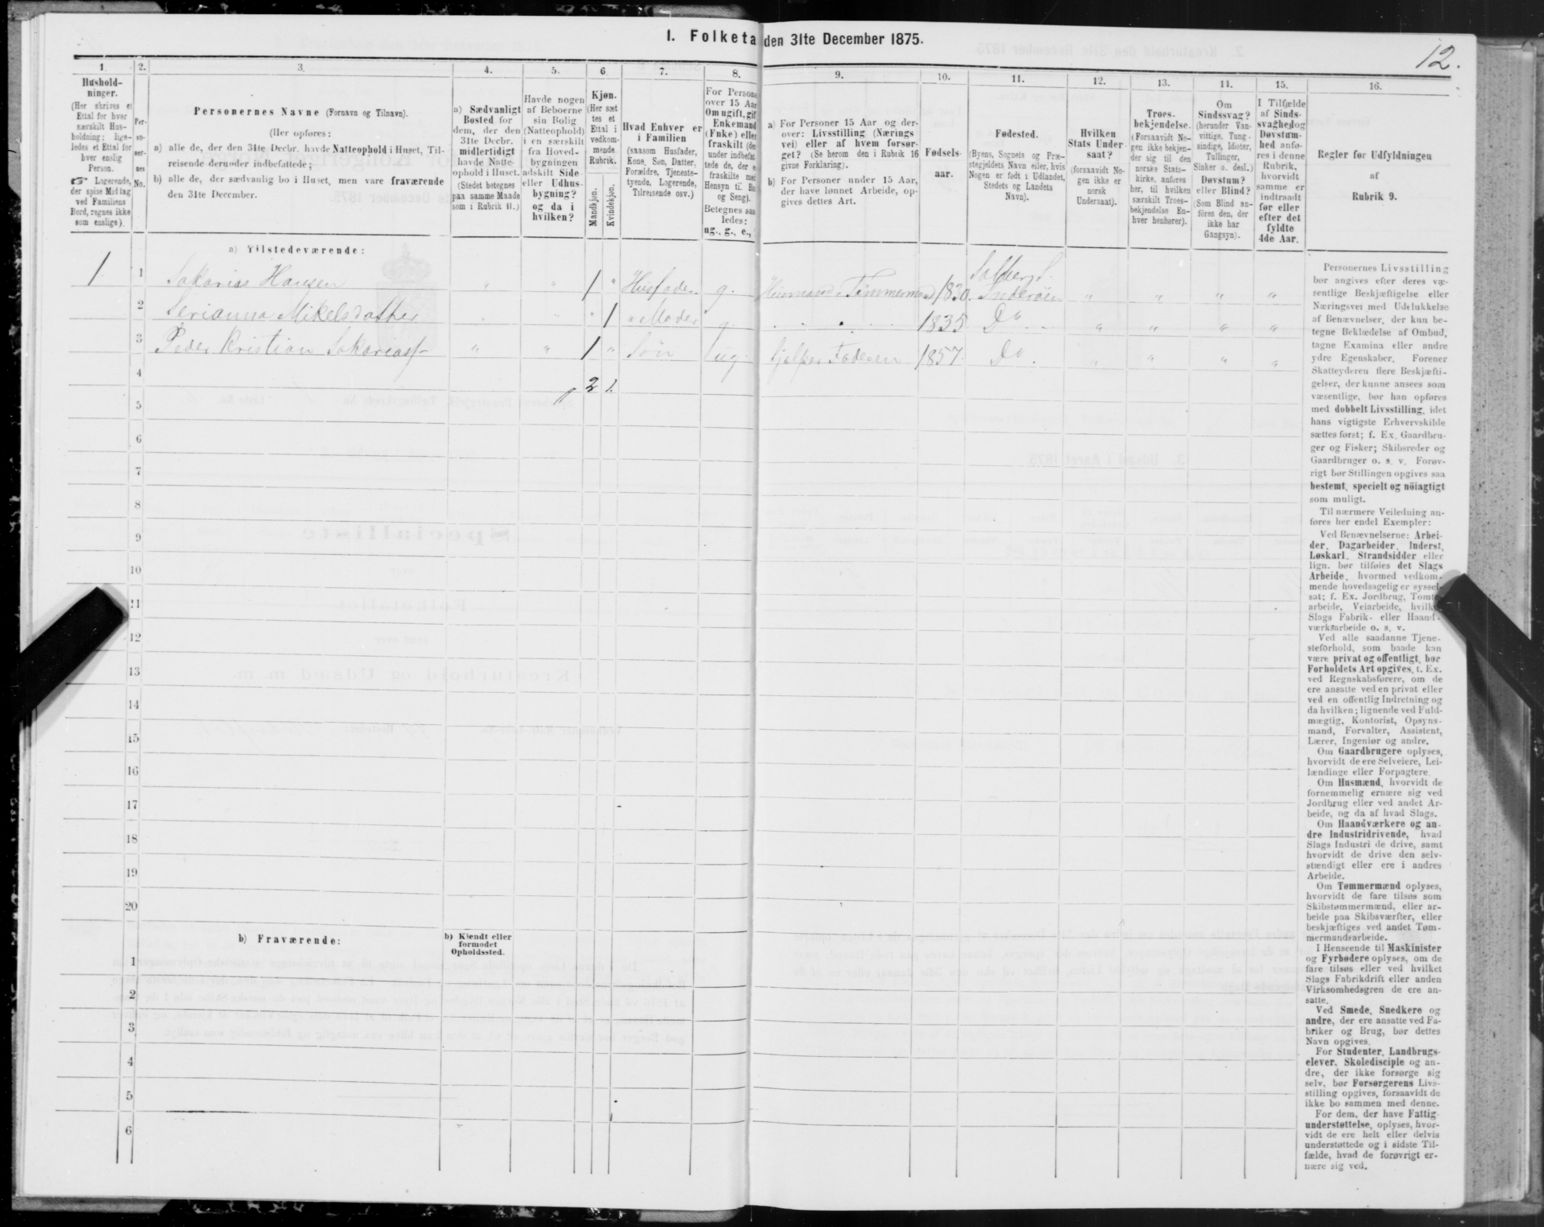 I. Folketa den 31te December 1875.
12.
1.
Hushold-
ninger.
(Her skrives et
Ettal for hver
særskilt Hus-
holdning; lige-
ledes et Ettal for
hver enslig
Person.
☞ Logerende,
der spise Middag
ved Familiens
Bord, regnes ikke
som enslige).
2.
Per-
so-
ner-
nes
No.
3.
Personernes Navne (Fornavn og Tilnavn).
(Her opføres:
a) alle de, der den 31te Decbr. havde Natteophold i Huset, Til-
reisende derunder indbefattede;
b) alle de, der sædvanlig bo i Huset, men vare fraværende
den 31te December.
4.
a) Sædvanligt
Bosted for
dem, der den
31te Decbr.
midlertidigt
havde Natte-
ophold i Huset.
(Stedet betegnes
paa samme Maade
som i Rubrik 11.)
5.
Havde nogen
af Beboerne
sin Bolig
(Natteophold)
i en særskilt
fra Hoved-
bygningen
adskilt Side-
eller Udhus-
bygning?
og da i
hvilken?
6
Kjøn.
(Her sæt-
tes et
Ettal i
vedkom-
mende
Rubrik.
Mandkjøn.
Kvindekjøn.
7.
Hvad Enhver er
i Familien
(saasom Husfader,
Kone, Søn, Datter,
Forældre, Tjeneste-
tyende, Logerende,
Tilreisende osv.)
8.
For Persone
over 15 Aar
Om ugift, gif
Enkemand
(Enke) eller
fraskilt (de
under indbefat
tede de, der e
fraskilte med
Hensyn til Bo
og Seng).
Betegnes saa
ledes:
ug., g., e.,
9.
a) For Personer 15 Aar og der-
over: Livsstilling (Nærings-
vei) eller af hvem forsør-
get? (Se herom den i Rubrik 16
givne Forklaring).
b) For Personer under 15 Aar,
der have lønnet Arbeide, op-
gives dettes Art.
10.
Fødsels-
aar.
11.
Fødested.
(Byens, Sognets og Præ-
stegjeldets Navn eller, hvis
Nogen er født i Udlandet,
Stedets og Landets
Navn).
12.
Hvilken
Stats Under-
saat?
(foraavidt No-
gen ikke er
norsk
Undersaat).
13.
Troes-
bekjendelse.
(Forsaavidt No-
gen ikke bekjen-
der sig til den
norske Stats-
kirke, anføres
her, til hvilken
særskilt Troes-
bekjendelse En-
hver henhører).
11.
Om
Sindssvag?
(herunder Van-
vittige, Tung-
sindige, Idioter,
Tullinger,
Sinker o. desl.)
Døvstum?
eller Blind?
(Som Blind an-
føres den, der
ikke har
Gangsyn).
15.
I Tilfælde
af Sinds-
svaghed og
Døvstum-
hed anfø-
res i denne
Rubrik,
hvorvidt
samme er
indtraadt
før eller
efter det
fyldte
4de Aar.
16.
Regler for Udfyldningen
af
Rubrik 9.
a) Tilstedeværende:
1
1 Sakarias Hansen " " 1 " Husfader g. Huusmand, Tømmermand 1830. Salberg S. Inderøen " " " "
2 Serianna Mikelsdatter " " " 1 Moder g 1835 Do " " " "
3 Peder Kristian Sakarias " " 1 " Søn ug. Hjelper Faderen 1857 Do " " " "
4
2 1
5
6
7
8
9
10
11
12
13
14
15
16
17
18
19
20
b) Fraværende:
b) Kjendt eller
formodet
Opholdssted.
1
2
3
4
5
6
Personernes Livsstilling
bør angives efter deres væ-
sentlige Beskjæftigelse eller
Næringsvei med Udelukkelse
af Benævnelser, der kun be-
tegne Beklædelse af Ombud,
tagne Examina eller andre
ydre Egenskaber. Forener
Skatteyderen flere Beskjæfti-
gelser, der kunne ansees som
væsentlige, bør han opføres
med dobbelt Livsstilling, idet
hans vigtigste Erhvervskilde
sættes først; f. Ex. Gaardbru-
ger og Fisker; Skibsreder og
Gaardbruger o. s. v. Forøv-
rigt bør Stillingen opgives saa
bestemt, specielt og nöiagtigt
som muligt.
Til nærmere Veiledning an-
føres her endel Exempler:
Ved Benævnelserne: Arbei-
der, Dagarbeider, Inderst,
Løskarl, Strandsidder eller
lign. bør tilføies det Slags
Arbeide, hvormed vedkom-
mende hovedsagelig er syssel-
sat; f. Ex. Jordbrug, Tomte-
arbeide, Veiarbeide, hvilket
Slags Fabrik- eller Haand-
værksarbeide o. s. v.
Ved alle saadanne Tjene-
steforhold, som baade kan
være privat og offentligt, bør
Forholdets Art opgives, t. Ex.
ved Regnskabsførere, om de
ere ansatte ved en privat eller
ved en offentlig Indretning og
da hvilken; lignende ved Fuld-
mægtig, Kontorist, Opsyns-
mand, Forvalter, Assistent,
Lærer, Ingeniør og andre.
Om Gaardbrugere oplyses,
hvorvidt de ere Selveiere, Lei-
lændinge eller Forpagtere.
Om Husmænd, hvorvidt de
fornemmelig ernære sig ved
Jordbrug eller ved andet Ar-
beide, og da af hvad Slags.
Om Haandværkere og an-
dre Industridrivende, hvad
Slags Industri de drive, samt
hvorvidt de drive den selv-
stændigt eller ere i andres
Arbeide.
Om Tømmermænd oplyses,
hvorvidt de fare tilsøs som
Skibstømmermænd, eller ar-
beide paa Skibsværfter, eller
beskjæftiges ved andet Tøm-
mermandsarbeide.
I Henseende til Maskinister
og Fyrbødere oplyses, om de
fare tilsøs eller ved hvilket
Slags Fabrikdrift eller anden
Virksomhedsgren de ere an-
satte.
Ved Smede, Snedkere og
andre, der ere ansatte ved Fa-
briker og Brug, bør dettes
Navn opgives.
For Studenter, Landbrugs-
elever, Skoledisciple og an-
dre, der ikke forsørge sig
selv, bør Forsørgerens Livs-
stilling opgives, forsaavidt de
ikke bo sammen med denne.
For dem, der have Fattig-
understøttelse, oplyses, hvor-
vidt de ere helt eller delvis
understøttede og i sidste Til-
fælde, hvad de forøvrigt er-
nære sig ved.